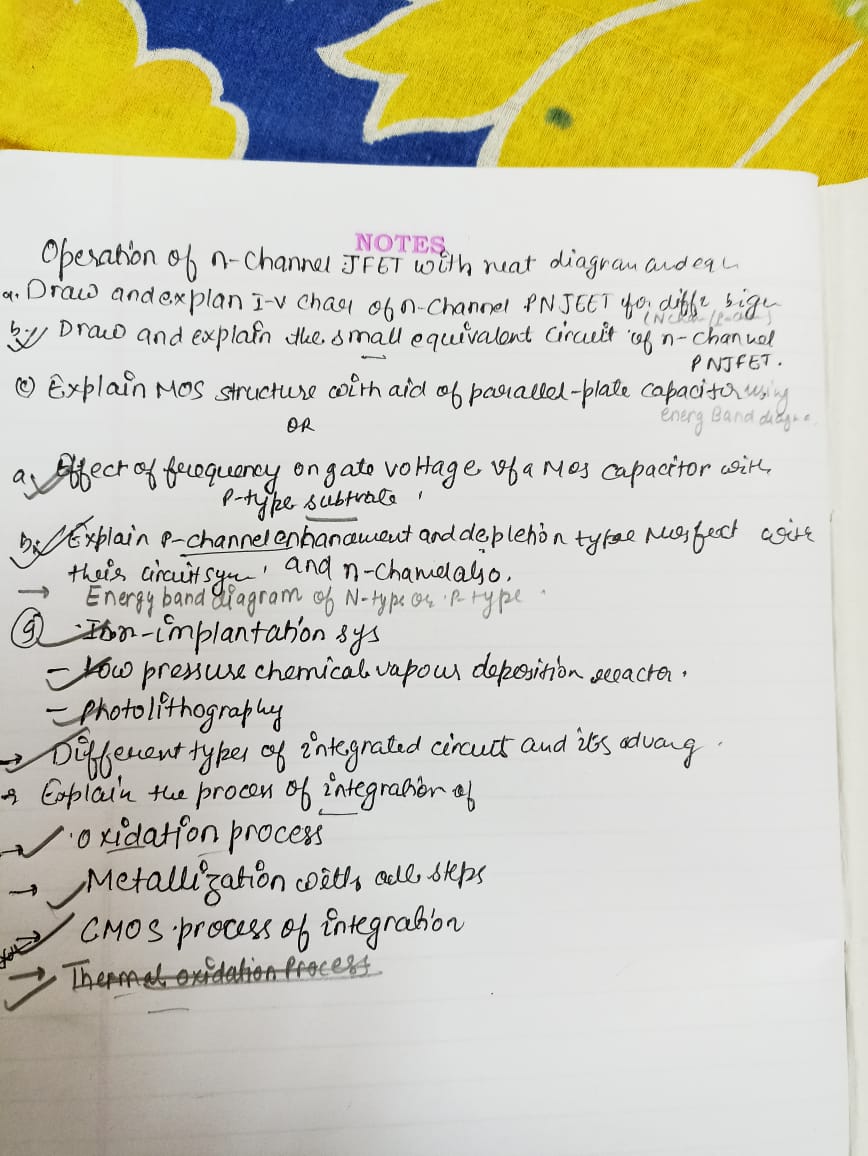 NOTES
Operation of n-Channel JFET with neat diagram and eq
a. Draw and explan I-V char of n-Channel PNJFET for diffe
b. Draw and explain the small equivalent circuit of n-channel
PNJFET.
(c) Explain MOS structure with aid of parallel-plate capacitor using
energ Band diag
OR
a, Effect of frequency on gate voltage of a MOS capacitor with
P-type subtrate
b, Explain P-channel enhancement and depletion type Mosfect with
their circuit sym and n-channel also.
→ Energy band diagram of N-type or P-type
Ion-implantation sys
- Low pressure chemical vapour deposition reactor.
- Photolithography
→ Different types of integrated circuit and its advang.
Explain the process of integration of
→ Oxidation process
→ Metallization with all steps
→ CMOS process of integration
→ Thermal oxidation Process